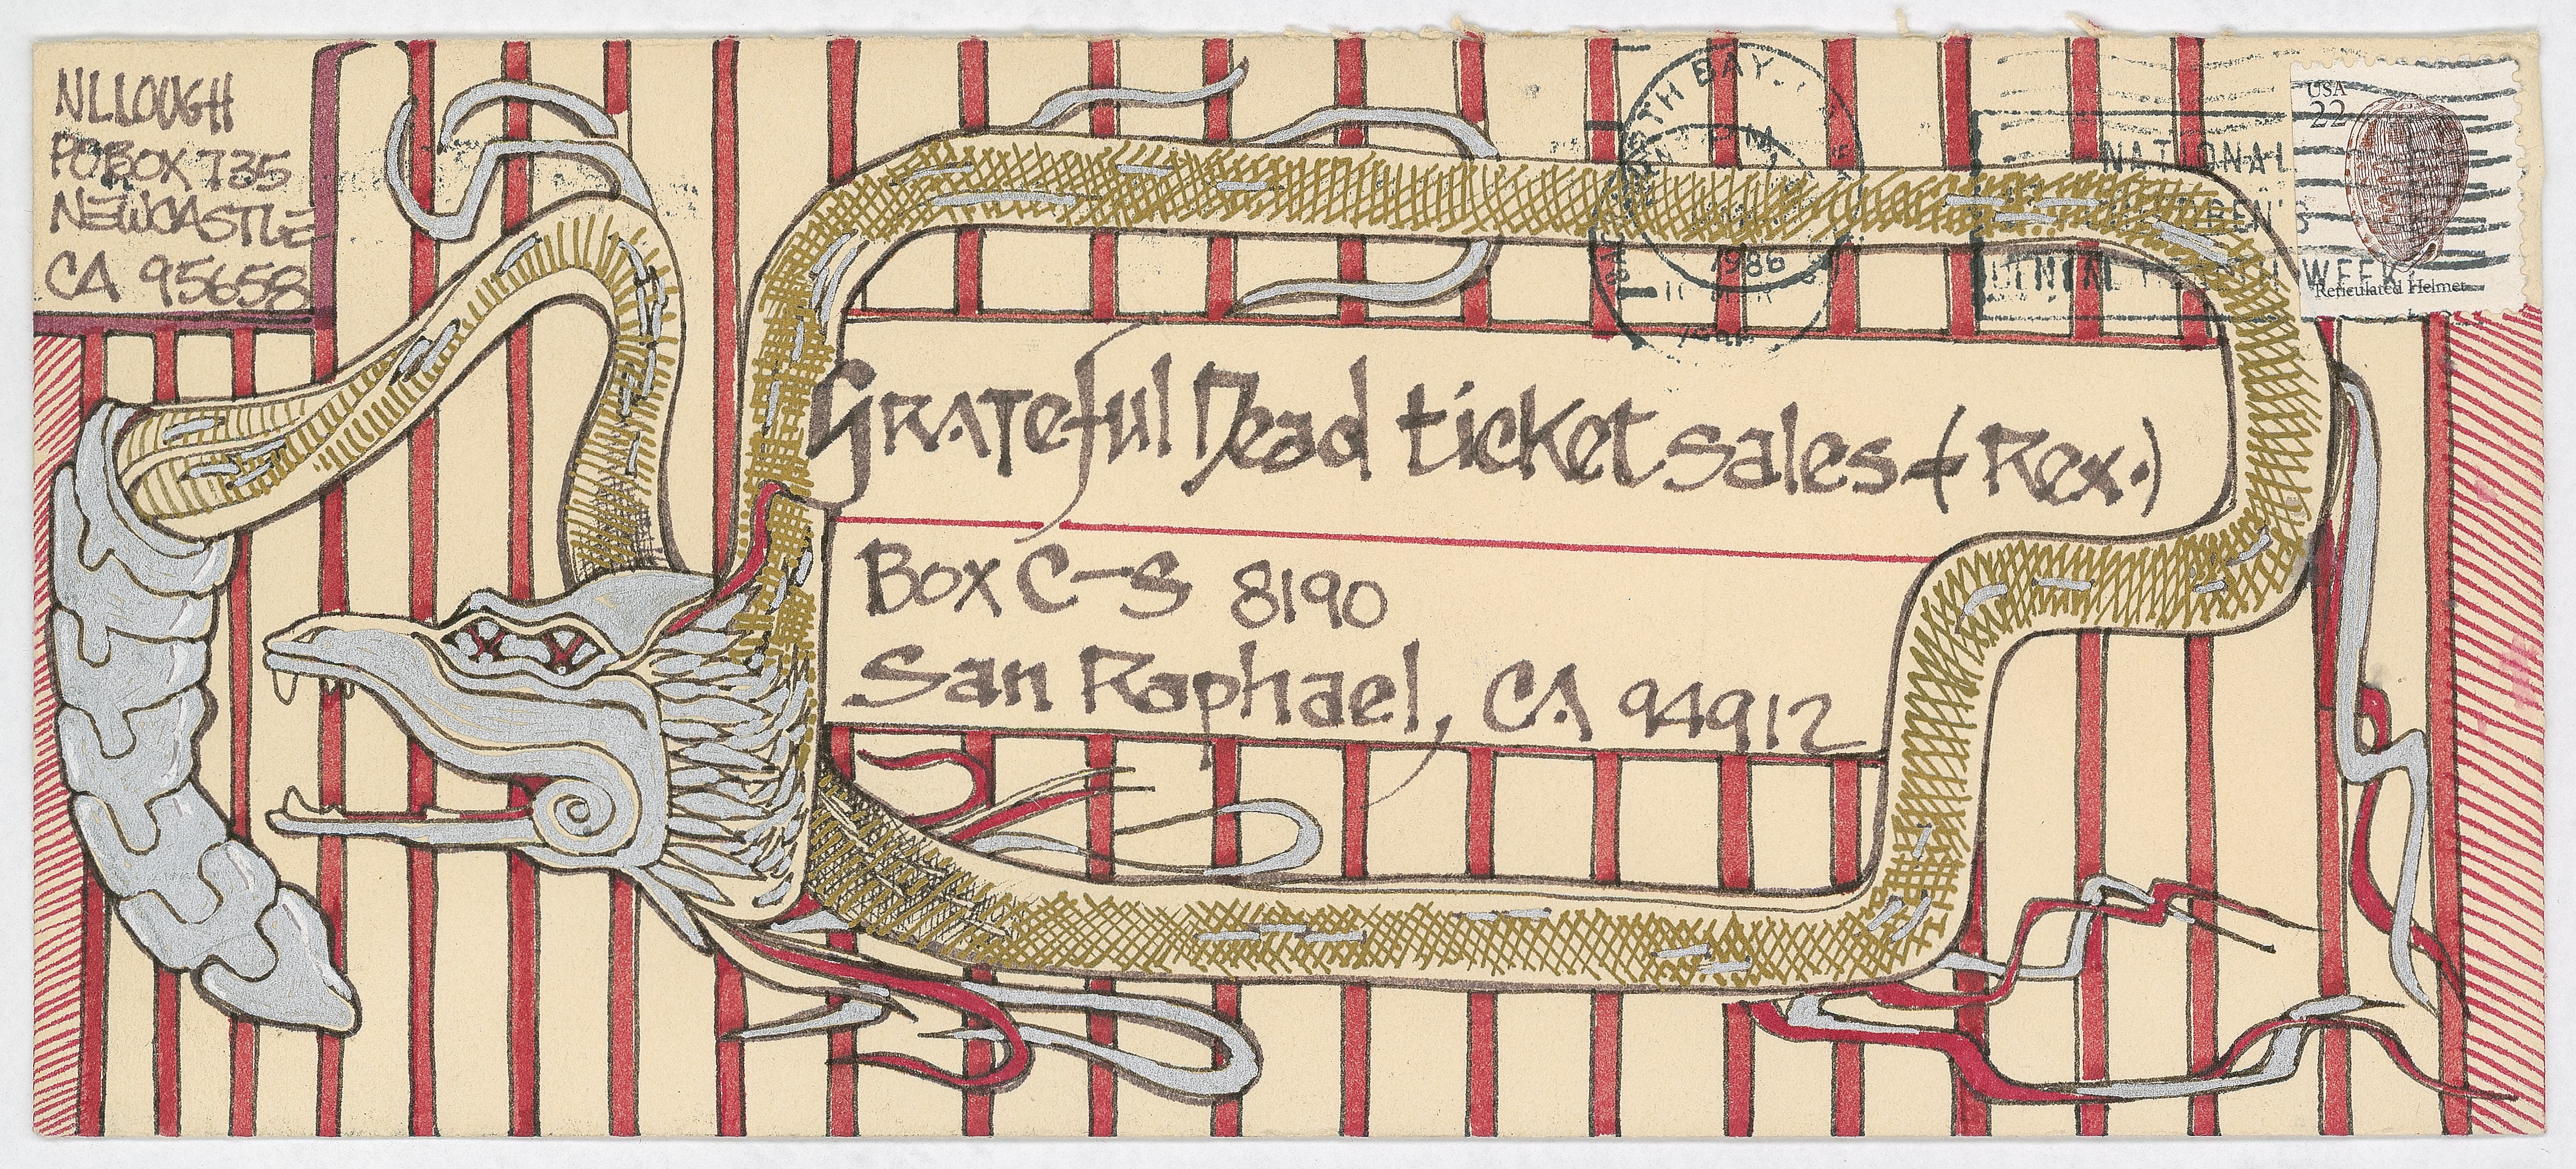 NLLOUGH
PO BOX 735
NEWCASTLE
CA 95658
NORTH BAY,
PM
1986
NATIONAL
WEEK
USA
22
Reticulated Helmet
Grateful Dead ticket sales (Rex.)
Box C-S 8190
San Raphael, CA 94912